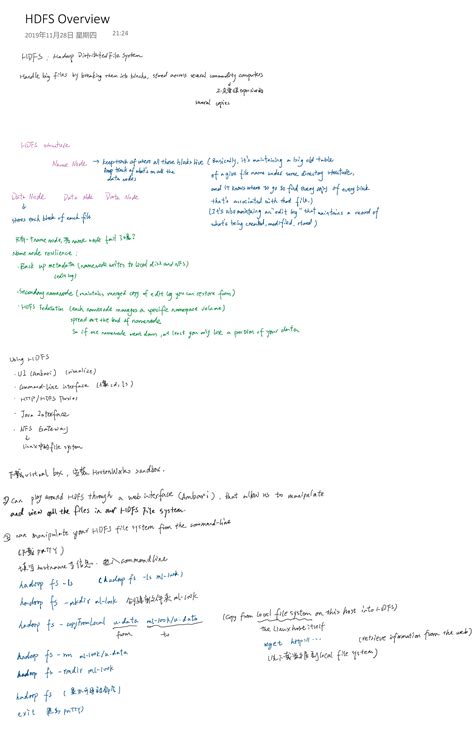 HDFS Overview
2019年11月28日 星期四 21:24
HDFS : Hadoop Distributed File System
Handle big files by breaking them into blocks, stored across several commodity computers
several copies
HDFS structure
Name Node → keep track of where all those blocks live (Basically, it's maintaining a big old table
keep track of what's on all the of a given file name under some directory structure,
data nodes and it knows where to go to find every copy of every block
that's associated with that file.)
Data Node Data Node Data Node
(It's also maintaining an "edit log" that maintains a record of
stores each block of each file
what's being created, modified, stored)
只有一个name node, name node fail
Name node resilience :
· Back up metadata (namenode writes to local disk and NFS)
· Secondary namenode (maintains merged copy of edit log you can restore from)
· HDFS Federation (each namenode manages a specific namespace volume)
spread out the load of namenode
So if one namenode went down, at least you only lose a portion of your data
Using HDFS
· UI (Ambari) (visualize)
· Command-Line Interface
· HTTP/HDFS Proxies
· Java Interface
· NFS Gateway
下载virtual box, 安装 HortonWorks sandbox.
① can play around HDFS through a web interface (Ambari), that allow us to manipulate
and view all the files in our HDFS file system
② can manipulate your HDFS file system from the command-line
(下载 PuTTY)
填写hostname等信息, 进入command line
hadoop fs -ls (hadoop fs -ls ml-100k)
hadoop fs -mkdir ml-100k 创建新文件夹 ml-100k
hadoop fs -copyFromLocal u.data ml-100k/u.data (copy from local file system on this host into HDFS)
from to the Linux host itself
wget http://... (retrieve information from the web)
hadoop fs -rm ml-100k/u.data
hadoop fs -rmdir ml-100k
hadoop fs
exit (退出 PuTTY)